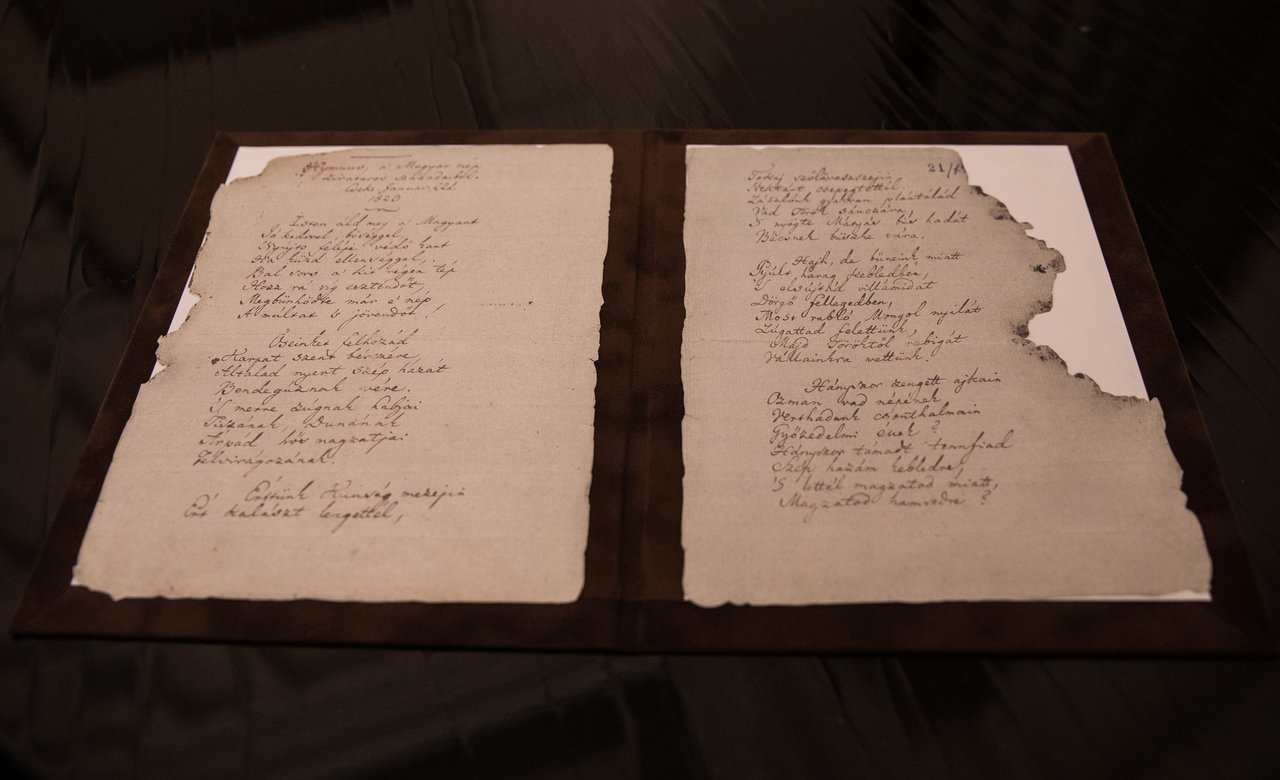 Hymnus, a' Magyar nép
zivataros századaiból.
Cseke Januar. 22d.
1823
Isten áld meg a' Magyart
Jó kedvvel, bőséggel,
Nyújts feléje védő kart
Ha küzd ellenséggel,
Bal sors a' kit régen tép
Hozz rá víg esztendőt,
Megbűnhödte már e' nép
A' múltat 's jövendőt!
Őseinket felhozád
Kárpát szent bérczére,
Általad nyert szép hazát
Bendegúznak vére.
'S merre zúgnak habjai
Tiszának, Dunának
Árpád hős magzatjai
Felvirágozának.
Értünk Kunság mezején
Ért kalászt lengettél,
21/
Tokaj szőlővesszejin
Nektárt csepegtettél.
Zászlónk gyakran plántálád
Vad Török sánczára
'S nyögte Mátyás bús hadát
Bécsnek büszke vára.
Hajh, de bűneink miatt
Gyúlt harag kebledben,
'S elsújtád villámidat
Dörgő fellegedben,
Most rabló Mongol nyilát
Zúgattad felettünk,
Majd Töröktől rabigát
Vállainkra vettünk.
Hányszor zengett ajkain
Ozman vad népének
Vert hadunk csonthalmain
Győzedelmi ének?
Hányszor támadt tennfiad
Szép hazám kebledre,
'S lettél magzatod miatt,
Magzatod hamvedre?